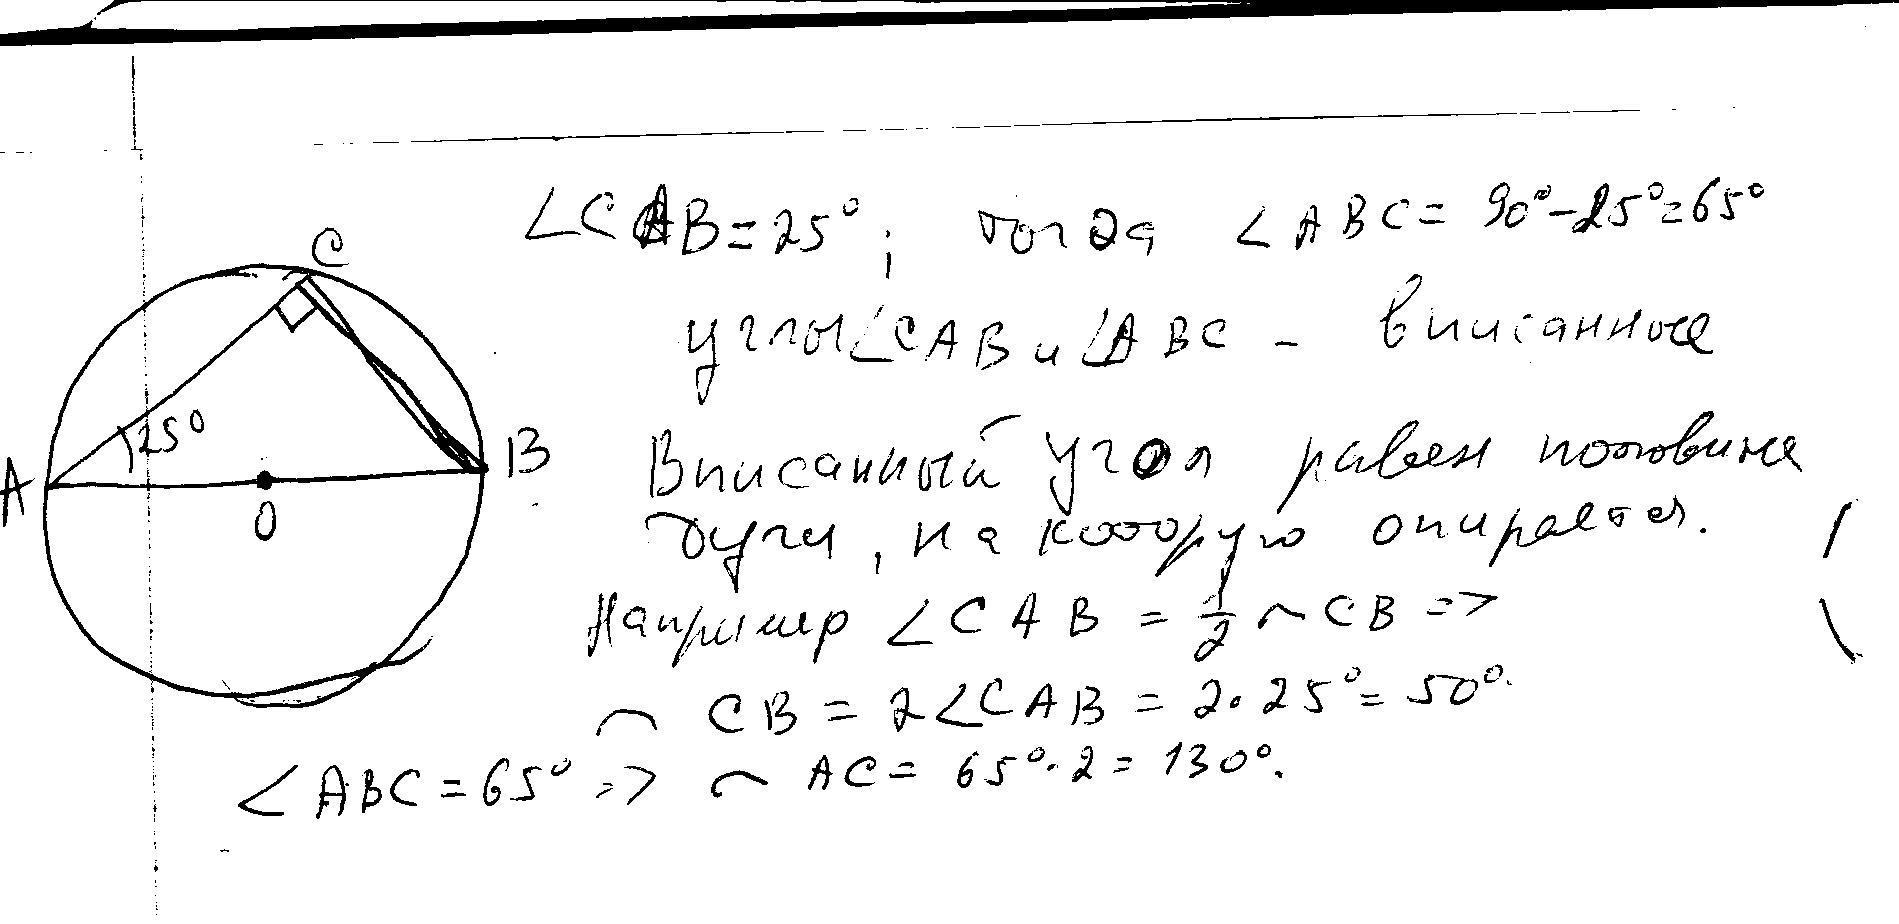 ∠CAB = 25°; тогда ∠ABC = 90° - 25° = 65°
C
углы ∠CAB и ∠ABC - вписанные
25°
A
B
O
Вписанный угол равен половине
дуги, на которую опирается.
Например ∠CAB = 1/2 ⌢ CB =>
⌢ CB = 2∠CAB = 2·25° = 50°.
∠ABC = 65° => ⌢ AC = 65°·2 = 130°.